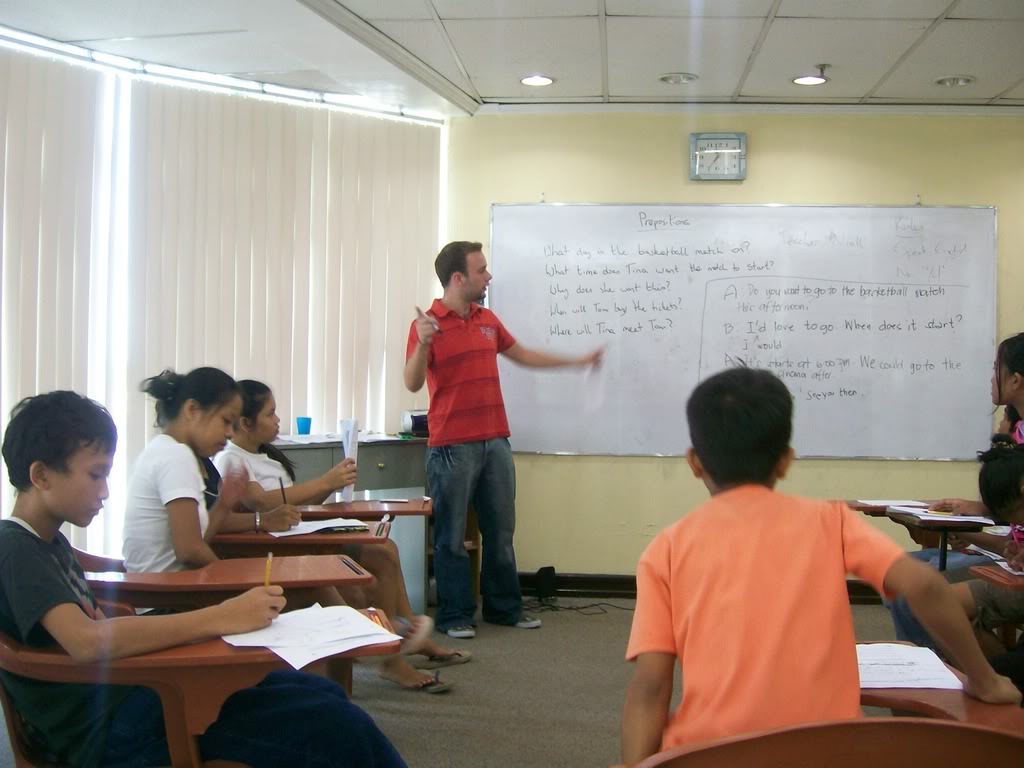 Prepositions
What day is the basketball match on?
What time does Tina want the match to start?
Why does she want this?
When will Tom buy the tickets?
Where will Tina meet Tom?
Teacher
Rules
Speak English
No
A: Do you want to go to the basketball match
this afternoon.
B. I'd love to go. When does it start?
I would
A. It's starts at 6:00 pm. We could go to the
cinema after
see you then.